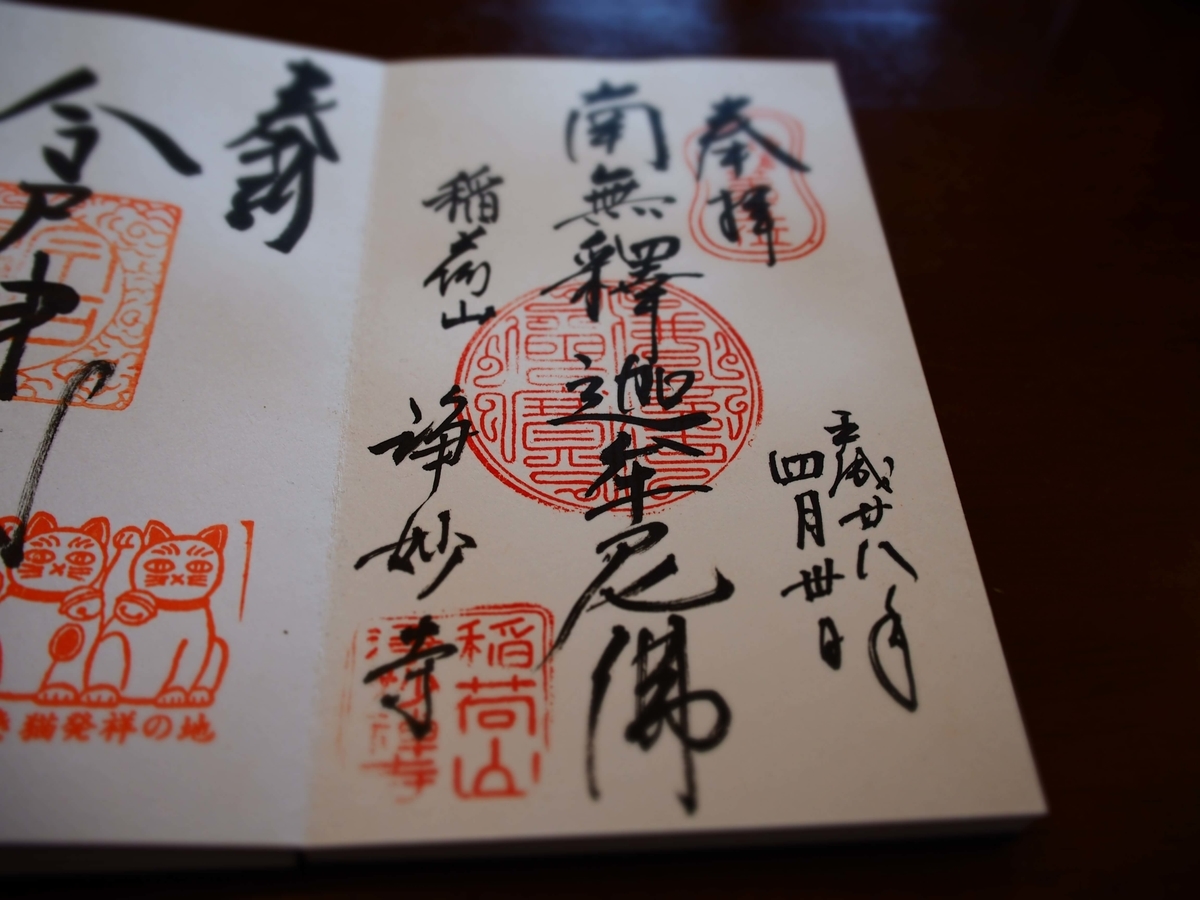 奉拝
平成廿八年
四月丗日
南無釋迦牟尼佛
稲荷山
淨妙寺
稲荷山
淨妙禅寺
奉拝
今戸神
猫発祥の地